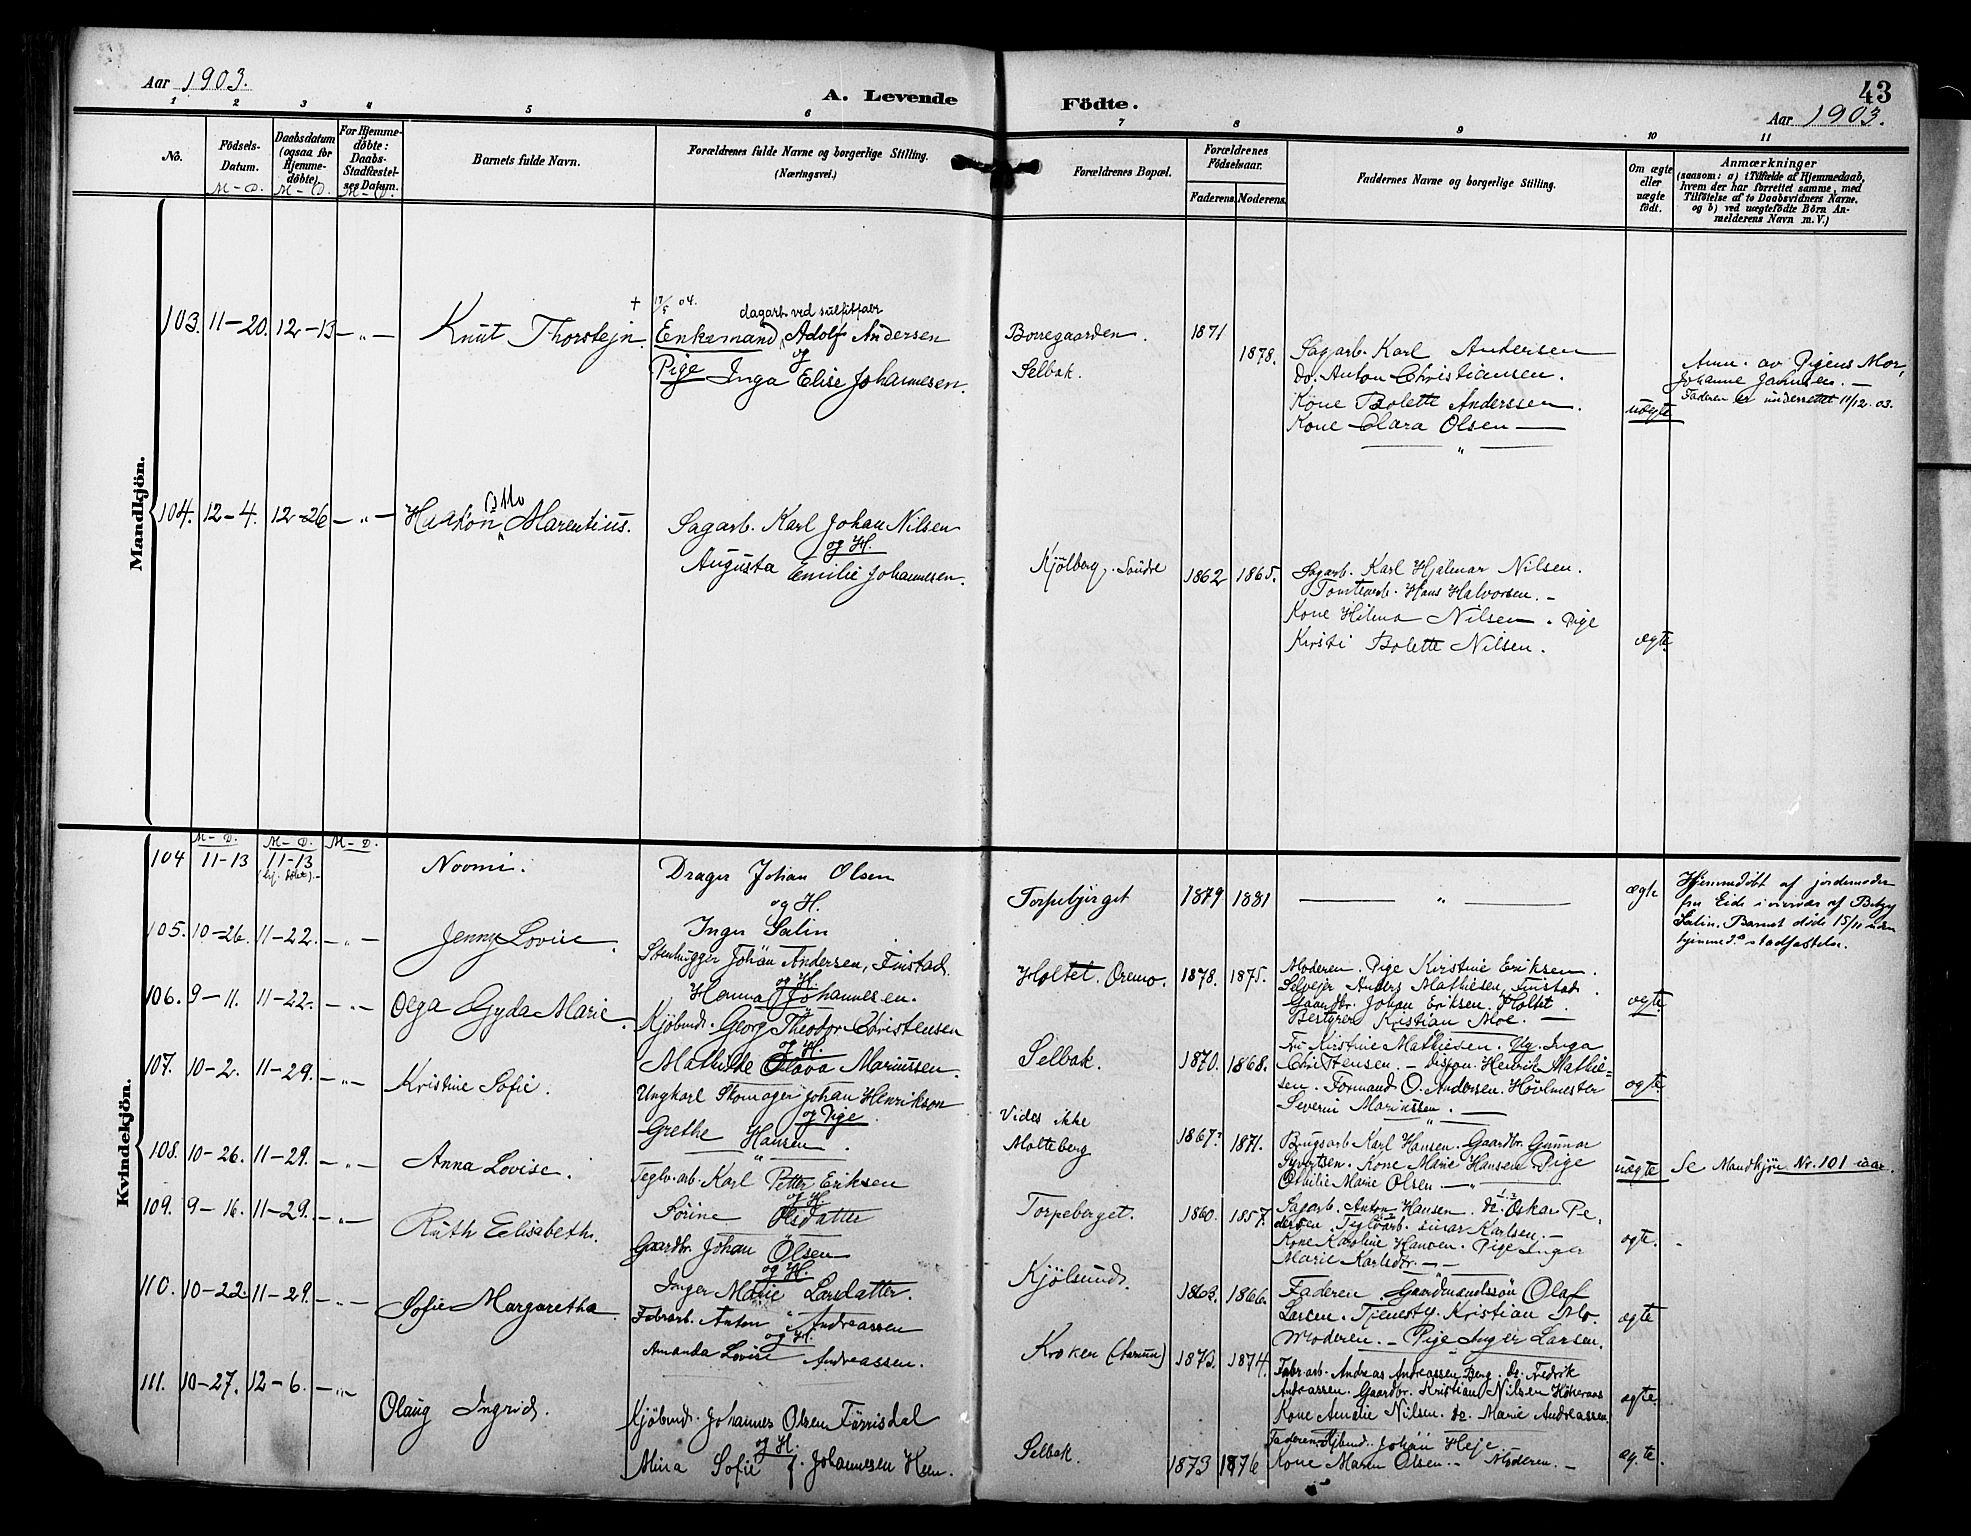 Aar 1903.
A. Levende
Födte.
43
Aar 1903.
1 2 3 4 5 6 7 8 9 10 11
No.
Födsels-
Datum.
M – D.
Daabsdatum
(ogsaa for
Hjemme-
döbte).
M – D.
For Hjemme-
döbte:
Daabs-
Stadfæstel-
ses Datum.
M – D.
Barnets fulde Navn.
Forældrenes fulde Navne og borgerlige Stilling.
(Næringsvei.)
Forældrenes Bopæl.
Forældrenes
Födselsaar.
Faderens.
Moderens.
Faddernes Navne og borgerlige Stilling.
Om ægte
eller
uægte
födt.
Anmærkninger
(saasom: a) i Tilfælde af Hjemmedaab,
hvem der har forrettet samme, med
Tilföielse af to Daabsvidners Navne.
og b) ved uægtefödte Börn An-
melderens Navn m. V.)
Mandkjön.
103. 11–20. 12–13 – „ –
Knut Thorstejn.
+ 17/5 04.
dagarb. ved sulfitfabr
Enkemand Adolf Andersen
og
Pige Inga Elise Johannesen.
Borregaarden.
Selbak.
1871
1878.
Sagarb. Karl Andersen
do. Anton Christiansen.
Kone Bolette Anderssen.
Kone Clara Olsen
„
uægte
Anm. av Pigens Mor,
Johanne Jahnsen. –
Faderen er underrettet 11/12 03.
104. 12–4. 12–26 – „ –
Otto
Haakon Marentius.
Sagarb. Karl Johan Nilsen
og H.
Augusta Emilie Johannesen.
Kjölberg, Söndre
1862 1865.
Sagarb. Karl Hjalmar Nilsen.
Tomtearb. Hans Halvorsen. –
Kone Hilma Nilsen. Pige
Kirsti Bolette Nilsen.
ægte
Kvindekjön.
M – D. M – D. M – D.
104 11–13 11–13
(hj. döbt). –
Noomi.
Drager Johan Olsen
og H.
Inger Salin
Torpebjerget
1879 1881
„
ægte
Hjemmedöbt af jordemoder
fru Eide i nærvær af Betzy
Salin. Barnet döde 15/11 uden
hjemmed.s stadfæstelse.
105. 10–26. 11–22. – „ –
Jenny Lovise.
Stenhugger Johan Andersen, Finstad.
og H.
Hanna Johannesen.
Holtet. Oremo.
1878. 1875.
Moderen. Pige Kirstine Eriksen.
Selvejer Anders Mathiesen, Finstad.
Gaardbr. Johan Eriksen. Holtet.
Bestyrer Kristian Moe. –
ægte
106. 9–11. 11–22. – „ –
Olga Gyda Marie.
Kjöbmd. Georg Theodor Christensen
og H.
Mathilde Olava Marinssen.
Selbak.
1870. 1868.
Fru Kirstine Mathiesen. Inga
Christensen. – Dispon. Henrik Mathie-
sen. Formand O. Andersen. Hövlmester
Severin Marinssen. –
ægte
107. 10–2. 11–29. – „ –
Kristine Sofie.
Ungkarl Skomager Johan Henrikson
og Pige
Grethe Hansen.
Vides ikke
Molteberg
1867? 1871.
Brugsarb. Karl Hansen. Gaardbr. Gunnar
Syvertsen. Kone Marie Hansen. Pige
Othilie Marie Olsen. –
uægte
Se Mandkjön Nr. 101 iaar.
108. 10–26. 11–29. – „ –
Anna Lovise.
Teglv.arb. Karl Petter Eriksen
og H.
Sörine Olsdatter
Torpeberget.
1860. 1857.
Sagarb. Anton Hansen. do. Oskar Pe-
dersen. Teglv.arb. Einar Karlsen. –
Kone Karoline Hansen. Pige Inger
Marie Karlsdtr. –
ægte.
109. 9–16. 11–29. – „ –
Ruth Elisabeth.
Gaardbr. Johan Olsen
og H.
Inger Marie Larsdatter.
Kjölsund.
1863. 1866.
Faderen. Gaardmandssön Olaf
Larsen. Tjenesty. Kristian Mo.
Moderen. – Pige Inger Larsen.
ægte
110. 10–22. 11–29. – „ –
Sofie Margaretha.
Fabrarb. Anton Andreassen
og H.
Amanda Lovise Andreassen.
Kroken
1873. 1874.
Fabr.arb. Andreas Andreassen Berg. do. Fredrik
Andreassen. Gaardbr. Kristian Nilsen
Kone Amalie Nilsen. do. Marie Andreassen.
ægte.
111. 10–27. 12–6. – „ –
Olaug Ingrid.
Kjöbmd. Johannes Olsen Förrisdal
og H.
Mina Sofie f. Johannesen Heen.
Selbak.
1873 1876
Faderen. Kjbmd. Johan Heje.
Kone Maren Olsen. – Moderen. –
ægte.